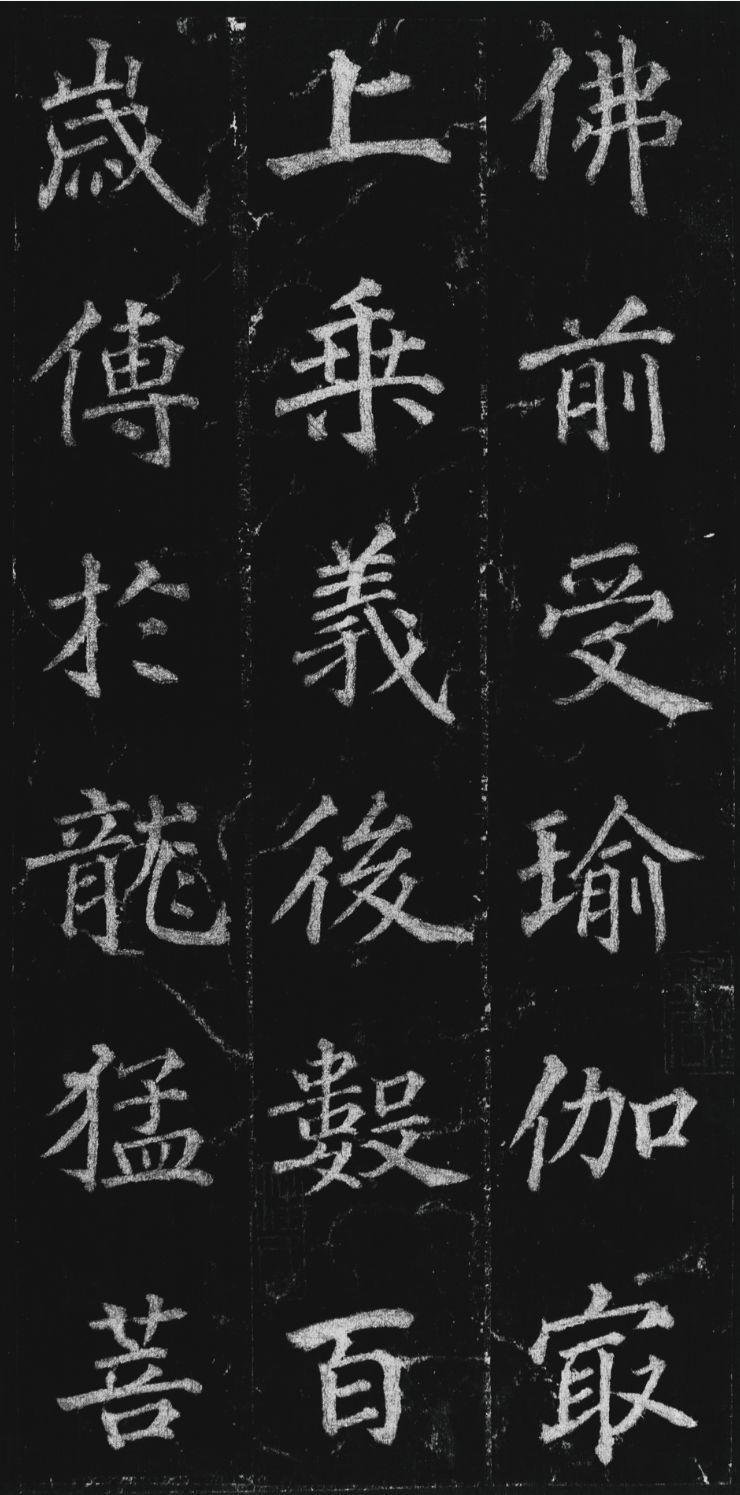 佛前受瑜伽㝡
上乗義後數百
歲傳於龍猛菩